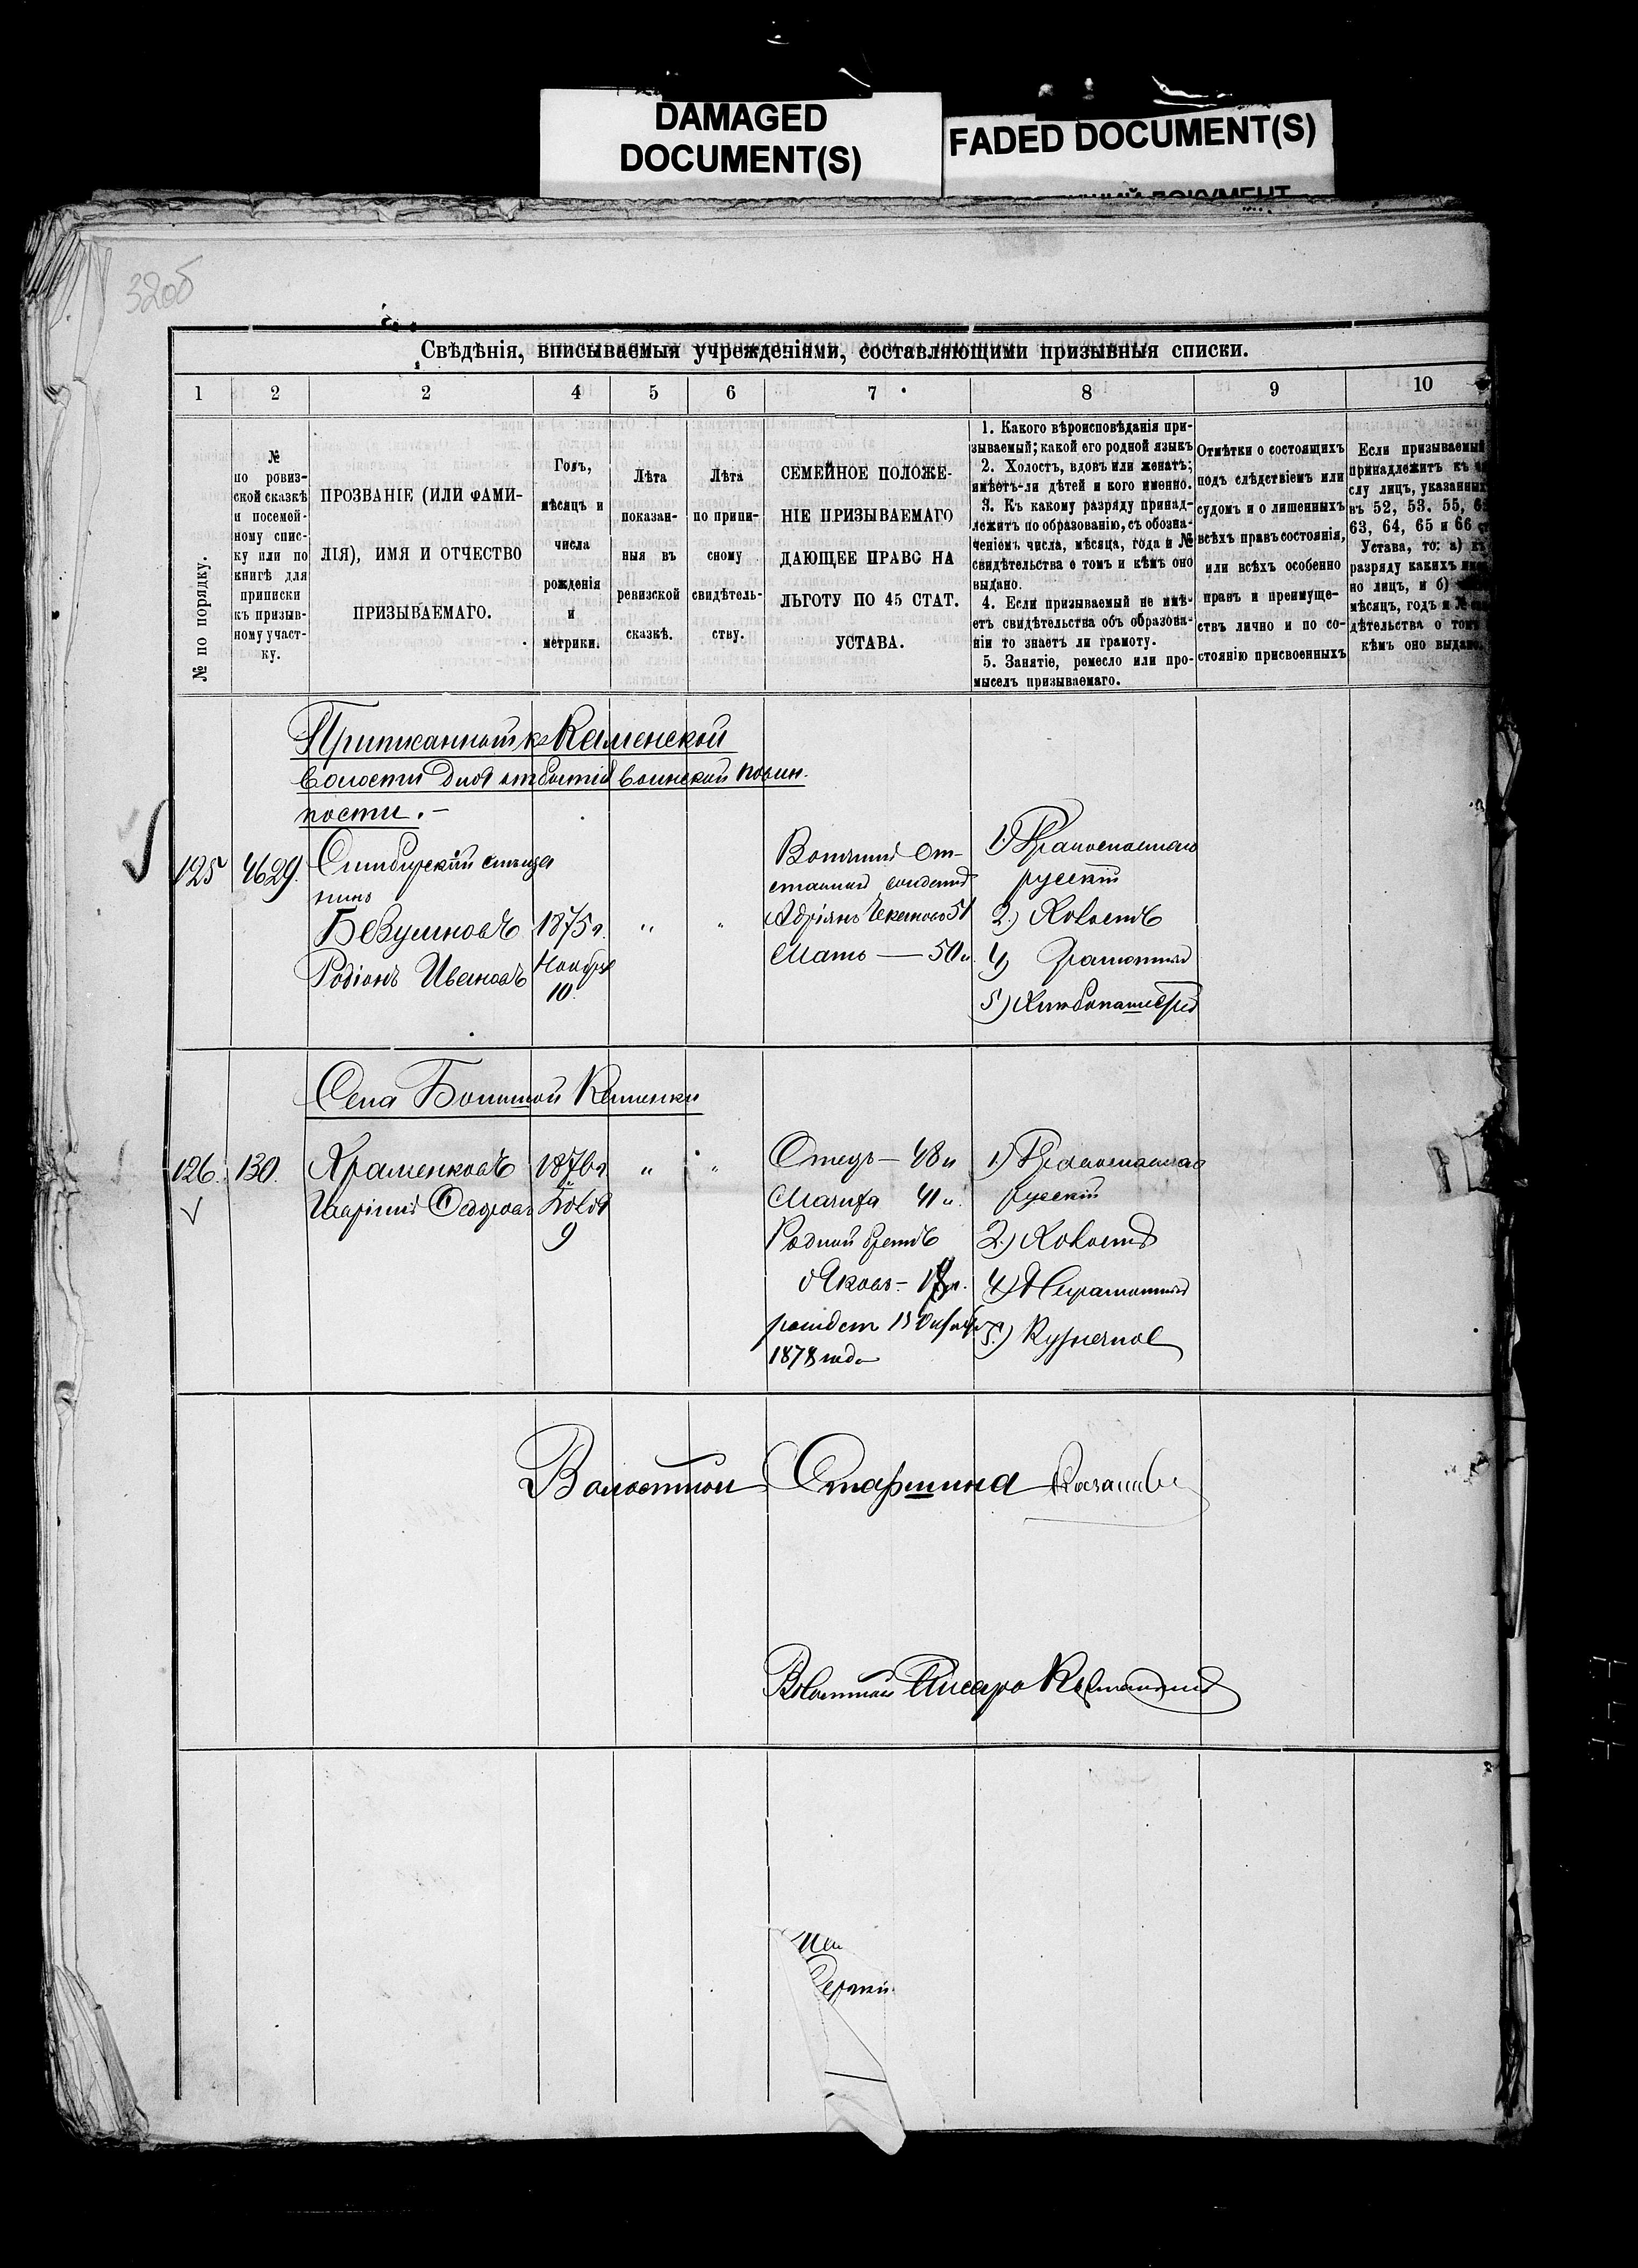 DAMAGED
DOCUMENT(S)
FADED DOCUMENT(S)
320б
Свѣдѣнія, вписываемыя учрежденіями, составляющими призывныя списки.
1 2 2 4 5 6 7 8 9 10
№ по порядку.
№
по ровиз-
ской сказкѣ
и посемей-
ному спис-
ку или по
книгѣ для
приписки
къ призыв-
ному участ-
ку.
ПРОЗВАНІЕ (ИЛИ ФАМИ-
ЛІЯ), ИМЯ И ОТЧЕСТВО
ПРИЗЫВАЕМАГО.
Годъ,
мѣсяцъ и
числа
рожденія
и
метрики.
Лѣта
показан-
ныя въ
ревизской
сказкѣ.
Лѣта
по припи-
сному
свидѣтель-
ству.
СЕМЕЙНОЕ ПОЛОЖЕ-
НІЕ ПРИЗЫВАЕМАГО
ДАЮЩЕЕ ПРАВО НА
ЛЬГОТУ ПО 45 СТАТ.
УСТАВА.
1. Какого вѣроисповѣданія при-
зываемый; какой его родной языкъ
2. Холостъ, вдовъ или женатъ;
имѣетъ-ли дѣтей и кого именно.
3. Къ какому разряду принад-
лежитъ по образованію, съ обозна-
ченіемъ числа, мѣсяца, года и №
свидѣтельства о томъ и кѣмъ оно
выдано.
4. Если призываемый не имѣ-
етъ свидѣтельства объ образова-
ніи то знаетъ ли грамоту.
5. Занятіе, ремесло или про-
мыселъ призываемаго.
Отмѣтки о состоящихъ
подъ слѣдствіемъ или
судомъ и о лишенныхъ
всѣхъ правъ состоянія,
или всѣхъ особенно
правъ и преимуще-
ствъ лично и по со-
стоянію присвоенныхъ
Если призываемый
принадлежитъ къ
слу лицъ, указанных
въ 52, 53. 55,
63, 64, 65 и 66
Устава, то: а)
разряду какихъ
но лицъ, и б)
мѣсяцъ, годъ и №
дѣтельства о томъ
кѣмъ оно выдано.
Приписанной къ Каменской
волости для отбытія воинской повин-
ности. –
125 4629. Симбирскій мѣща
нинъ
Безумновъ 1875 г. " "
Родіонъ Ивановъ Ноября
10.
Вотчимъ От-
ставной солдатъ
Адріянъ 51
Мать — 50 л.
1.) Православнаго
русскій
2.) Холостъ
4) Грамотный
5.) Хлѣбопашецъ
Села Большой Каменки
126. 130. Храменковъ 1876 г. " "
Ѳедоровъ Іюля
9
Отецъ – 48 л
Мачиха 41 л.
Родной братъ
Яковъ –
1878 года
1.) Православнаго
русскій
2.) Холостъ
4.) Неграмотный
5.)
Волостной Старшина
Волостной Писарь